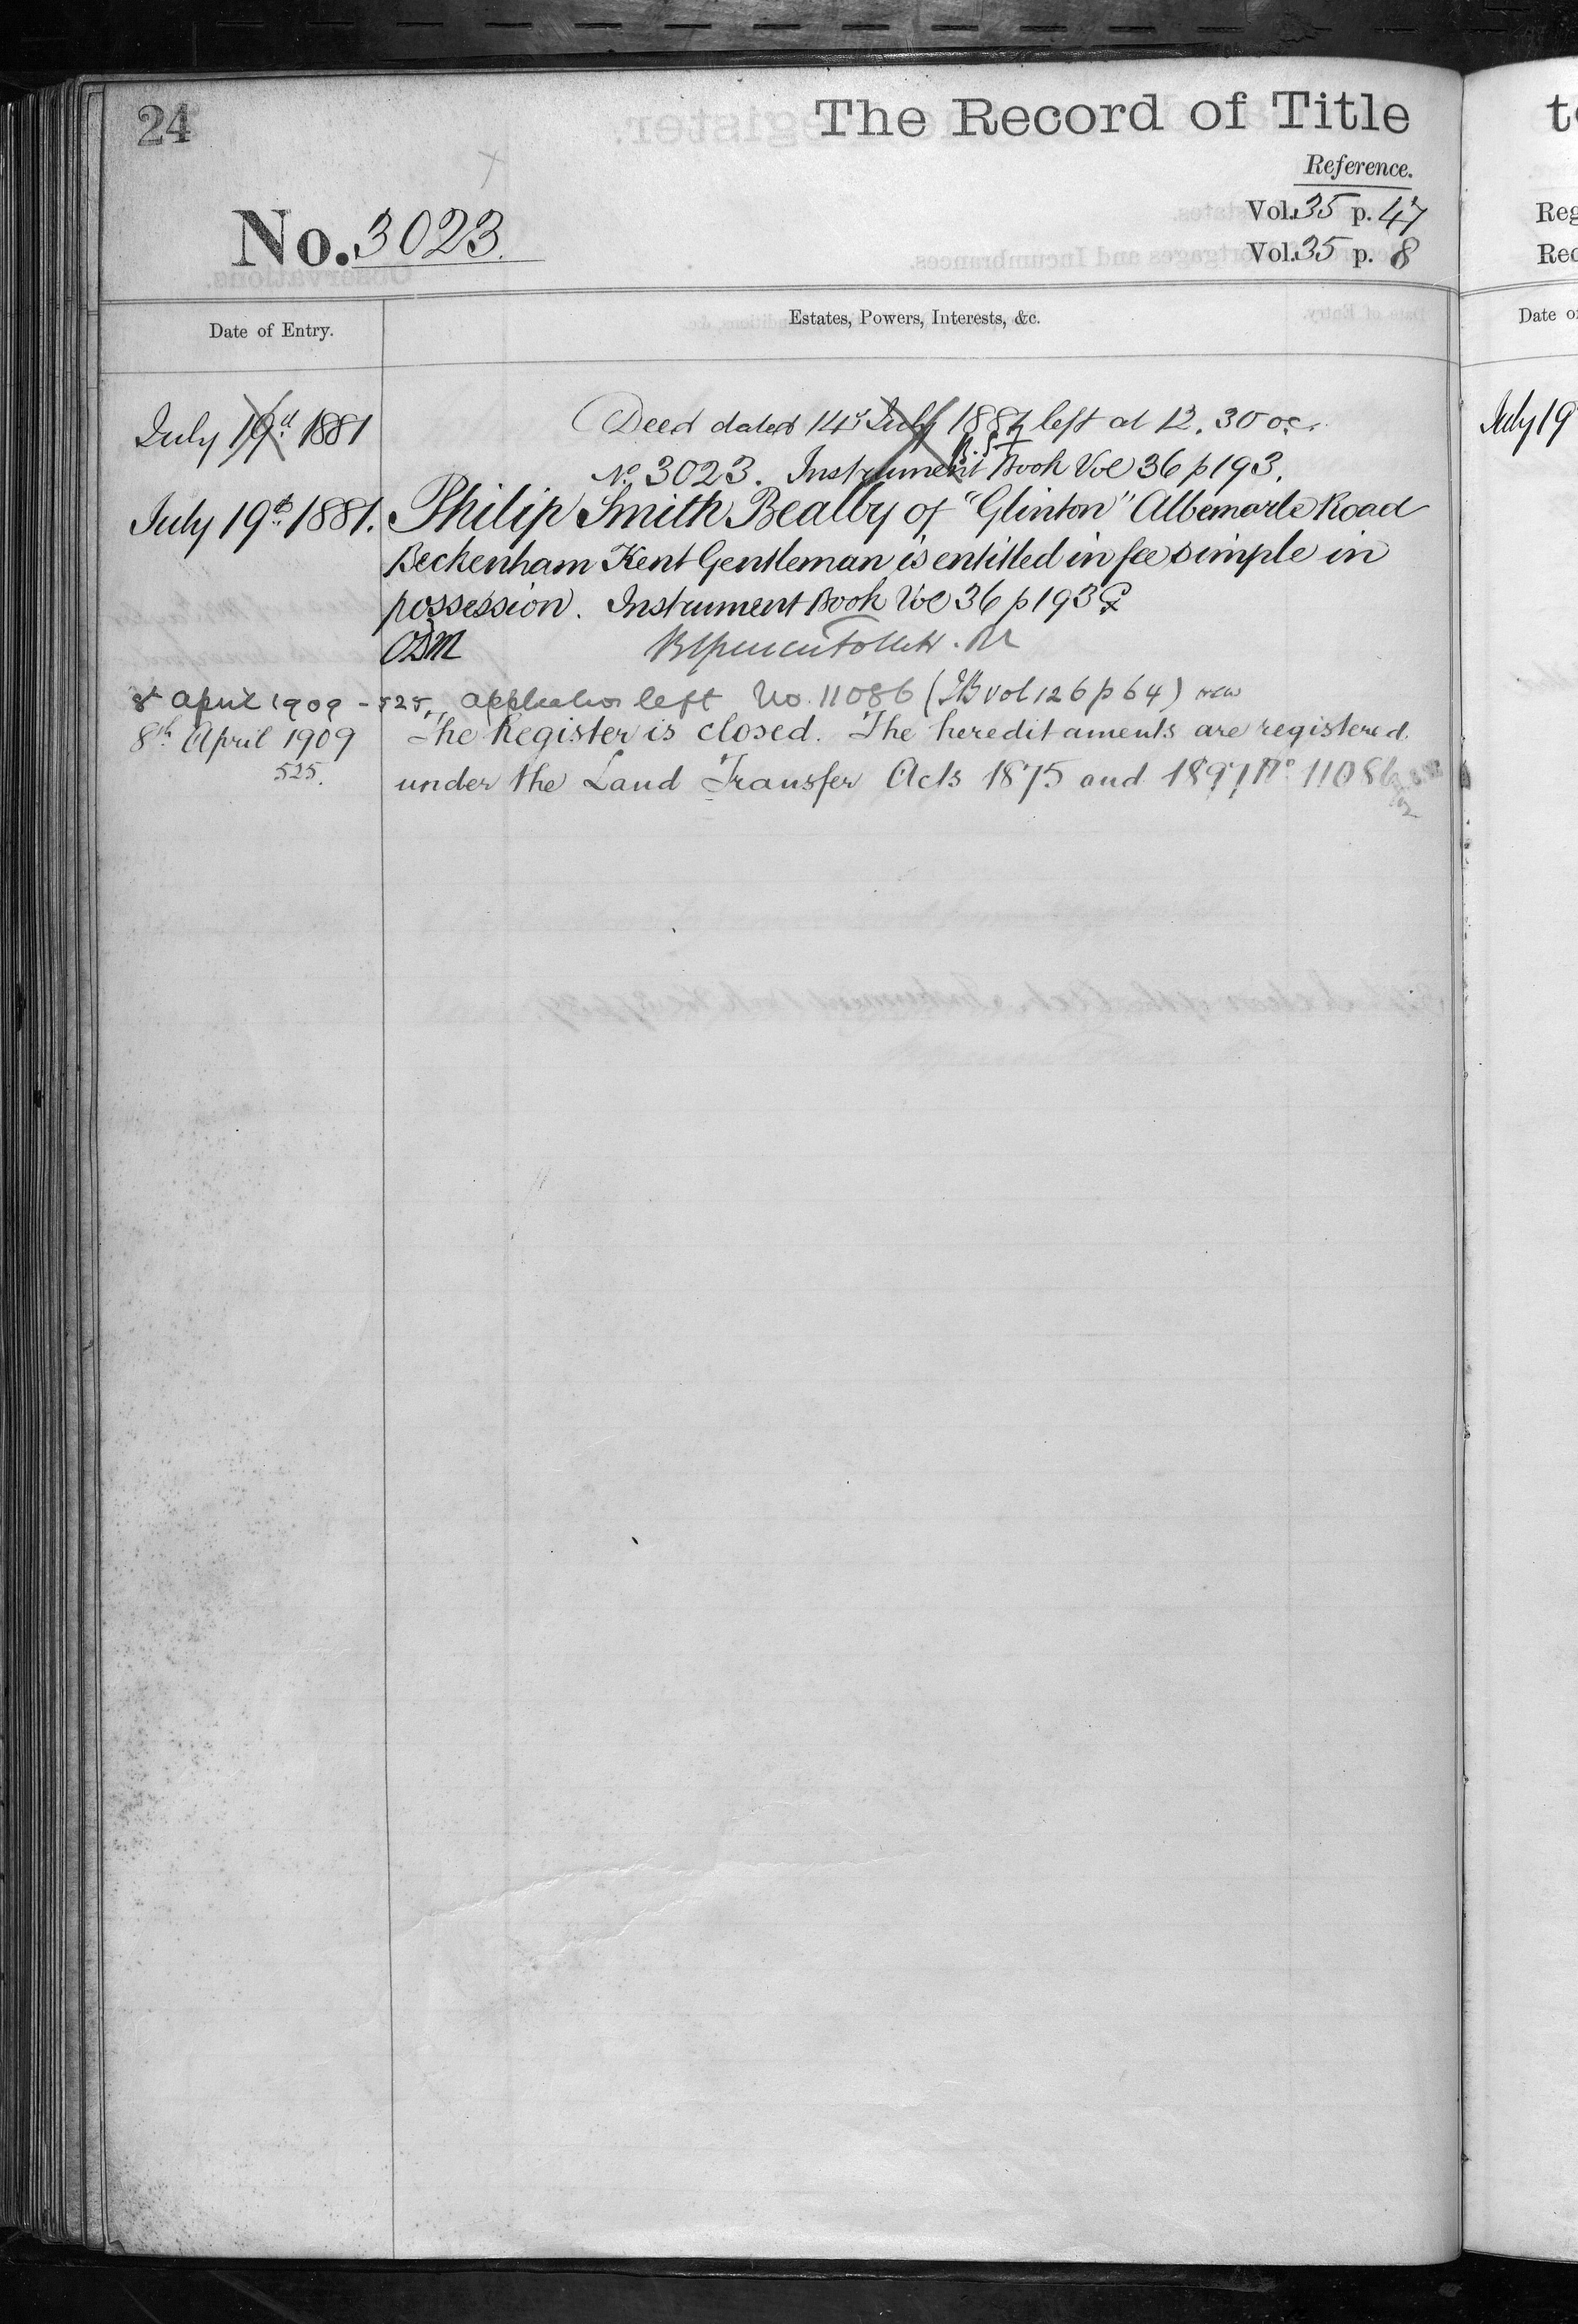 24
The Record of Title
Reference.
No. 3023.
Vol. 35 p. 47
Vol. 35 p. 8
Date of Entry.
Estates, Powers, Interests, &c.
July 19th 1881
Deed dated 14 July 1881 left at 12.30 oc.
No 3023. Instrument Book Vol 36 p 193.
July 19th 1881.
Philip Smith Bealby of "Glinton" Albemarle Road
Beckenham Kent Gentleman is entitled in fee simple in
possession. Instrument Book Vol 36 p 193
8th April 1909 - 525. Application left No. 11086 (IB vol 126 p 64)
8th April 1909
525.
The Register is closed. The hereditaments are registered
under the Land Transfer Acts 1875 and 1897 No 11086
Reg
Rec
Date of
July 19